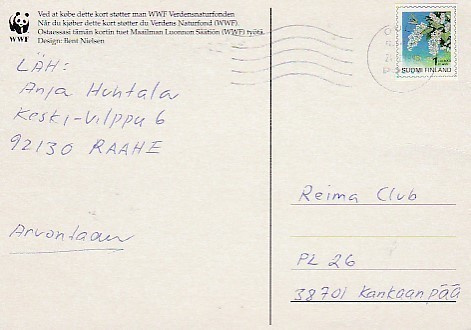 WWF
Ved at købe dette kort støtter man WWF Verdensnaturfonden
Når du kjøber dette kort støtter du Verdens Naturfond (WWF)
Ostaessasi tämän kortin tuet Maailman Luonnon Säätiön (WWF) työtä
Design: Bent Nielsen
SUOMI FINLAND
1
LÄH:
Anja Huhtala
Keski-Vilppu 6
92130 RAAHE
Arvontaan
Reima Club
PL 26
38701 Kankaanpää